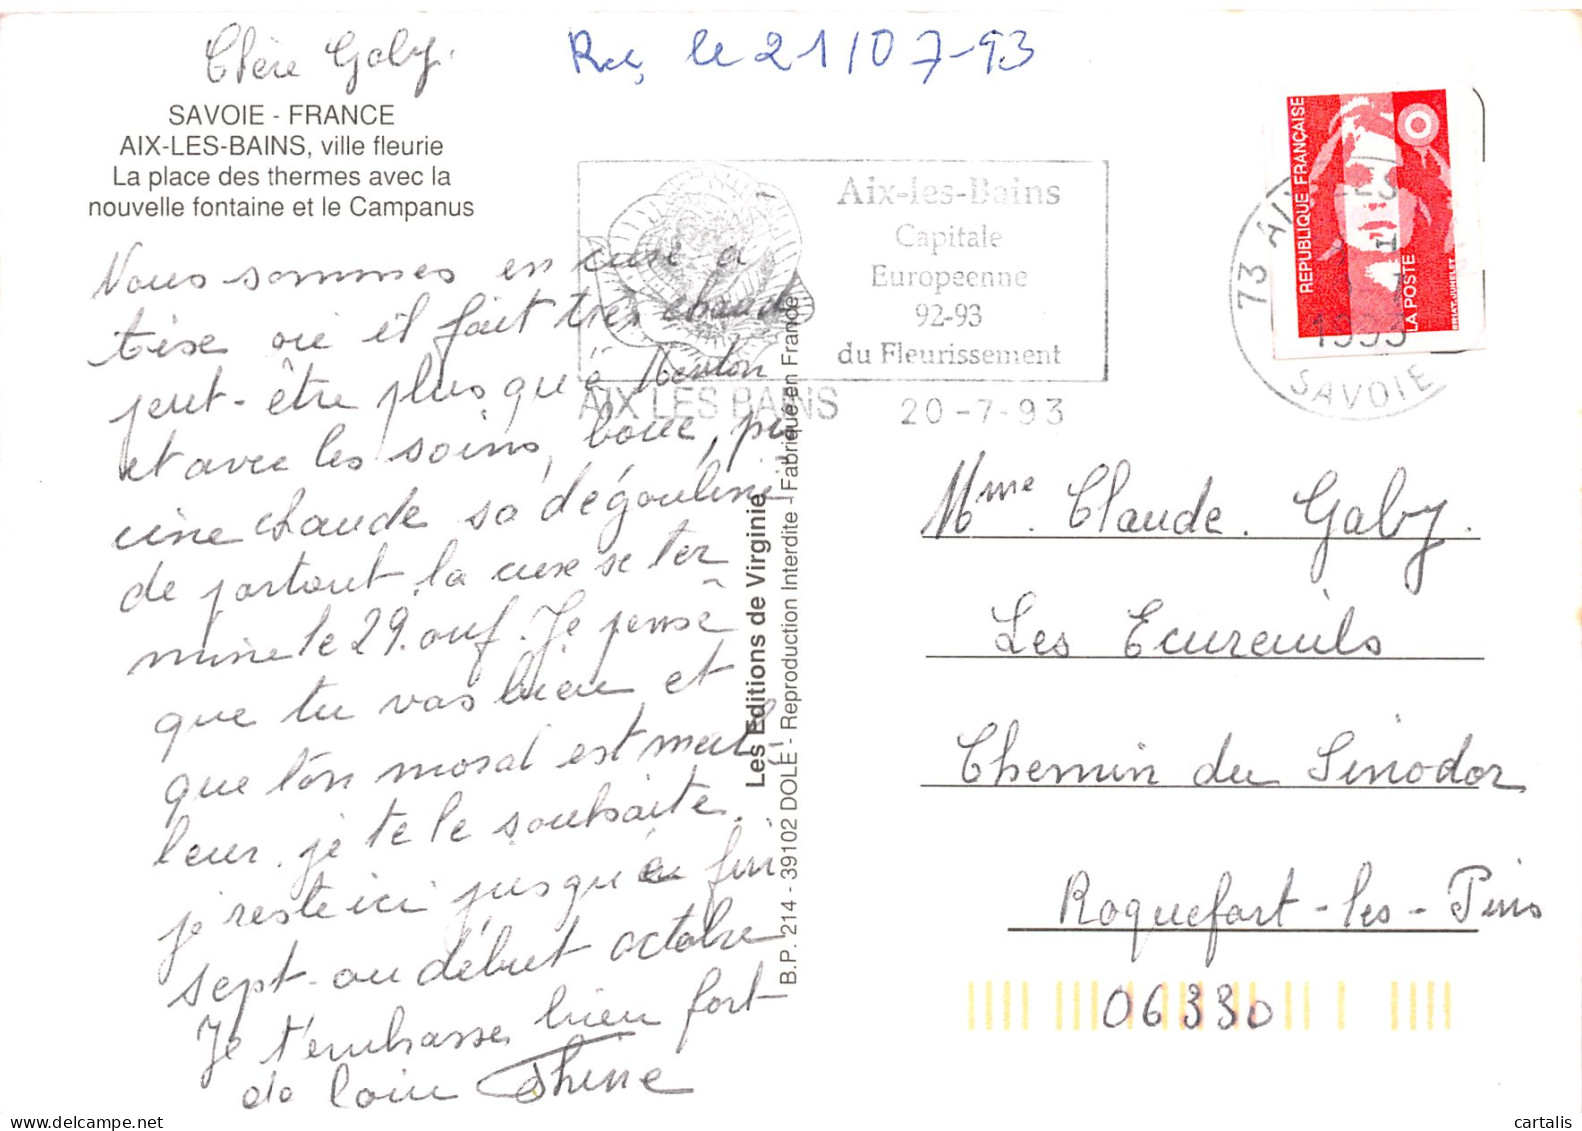 Chère Gaby.
Reç le 21/07-93
SAVOIE - FRANCE
AIX-LES-BAINS, ville fleurie
La place des thermes avec la
nouvelle fontaine et le Campanus
Nous sommes en cure a
tise ou il fait très chaud
peut-être plus qu'à Menton
et avec les soins, boue, pis
cine chaude sa dégouline
de partout, la cure se ter
mine le 29. ouf. Je pense
que tu vas bien et
que ton moral est meil
leur. je te le souhaite.
je reste ici jusqu'à fin
sept. ou début octobre
Je t'embrasse bien fort
de loin Thine
Les Editions de Virginie
B.P. 214 - 39102 DOLE - Reproduction Interdite - Fabriqué en France
Aix-les-Bains
Capitale
Europeenne
92-93
du Fleurissement
AIX LES BAINS 20-7-93
REPUBLIQUE FRANÇAISE
LA POSTE
BRIAT-JUMELET
73 AIX LES
1993
SAVOIE
Mme. Claude. Gaby.
Les Ecureuils
Chemin du Sinodor
Roquefort-les-Pins
06330
cartalis